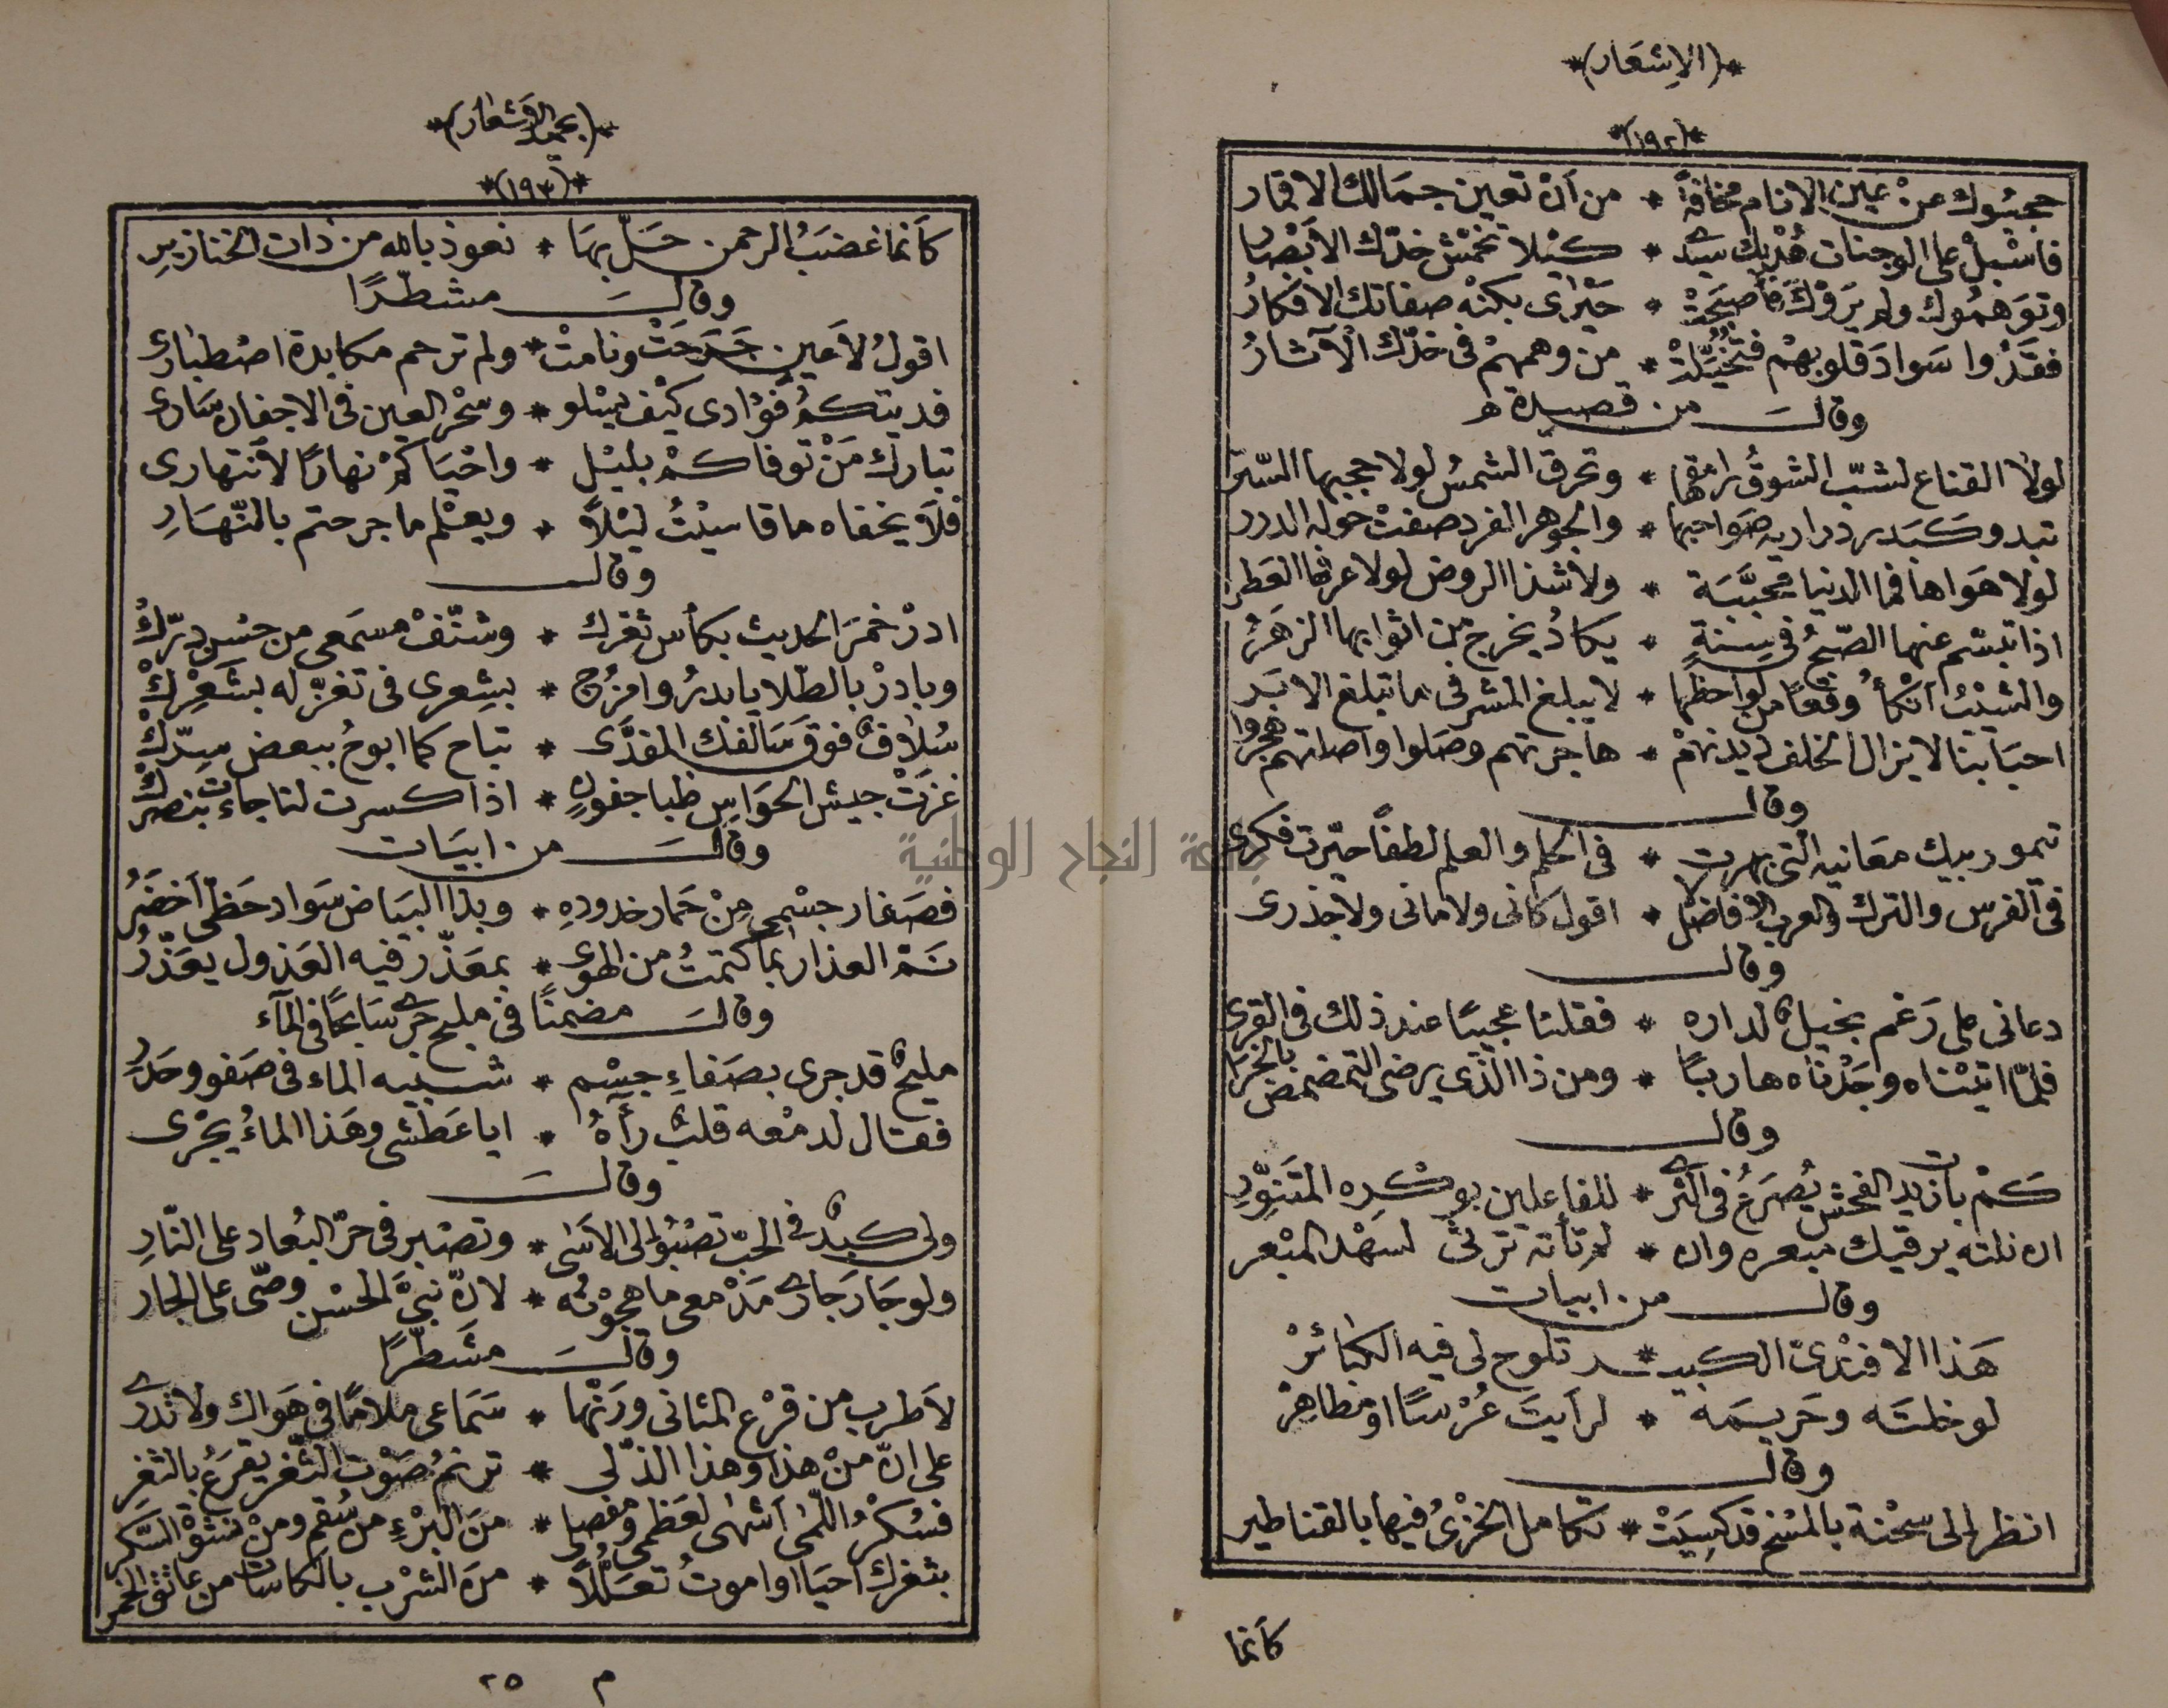 *(الاشعار)*
*(١٩٢)*
حجبوك عن عين الانام مخافةً * من أن تعين جمالك الاقمار
فاسبل على الوجنات هُدبك سيدي * كيلا تخمش خدّك الأبصار
وتوهموك ولم يروك فأصبحت * حيرى بكنه صفاتك الأفكارُ
ففَدَوا سوادَ قلوبهم فتخيّلت * من وهمهم في خدّك الآثارُ
وقال من قصيدة
لولا القناع لشبّ الشوقُ رامقها * وتحرق الشمسُ لولا حجبها الستر
تبدو كبدر دراريه صواحبها * والجوهر الفرد صفت حوله الدرر
لولا هواها فما الدنيا محببَّة * ولا شذا الروض لولا عرفها العَطر
اذا تبسّم عنها الصّبحُ في سِنةٍ * يكادُ يخرج من اثوابها الزهرُ
والشيئُ أنكأ وقعًا من لواحظها * لا يبلغ المشرفي ما تبلغ الابر
احبابنا لا يزال الخلف ديدنهمْ * هاجرتهم وصلوا واصلتهم هجروا
وقال
تيمور بيك معانيه التي بهرت * في الحلم والعلم لطفًا حيّرت فكري
في الفرس والترك والعرب الافاضل * اقول كانى ولا مانى ولا جذرى
وقال
دعانى على رَغم بخيلٌ لداره * فقلنا عجيبًا عند ذلك في القرى
فلمّا اتيناه وجدناه هاربًا * ومن ذا الذي يرضى التمضمض بالخرا
وقال
كم بات زيد الفحش يُصرَعُ في الثرى * للفاعلين بوكره المتنوّر
ان نلته يرقيك مبعره وان * لم تأته ترنى لسهد المبعر
وقال من ابيات
هذا الافندى الكبير * تلوح لى فيه الكبائرْ
لو خلته وحريمه * لرأيت عُرْسًا او مظاهرْ
وقال
انظر إلى سحنة بالمسخ قد كسيت * تكامل الخزىُ فيها بالقناطير
كأنما
*(بحمد الاشعار)*
*(١٩٣)*
كأنما غضبُ الرحمن حلّ بها * نعوذ بالله من ذات الخنازير
وقال مشطرًا
اقولُ لأعين جَرحت ونامتْ * ولم ترحم مكابدة اصطبارى
فديتكمُ فؤادى كيف يسلو * وسحْر العين في الاجفان سارى
تبارك مَنْ توفاكمْ بليل * واحياكم نهارًا لانتهارى
فلا يخفاه ما قاسيتُ ليلاً * ويعلم ما جرحتم بالنّهار
وقال
ادرْ خمرَ الحديث بكأس ثغرك * وشنّفْ مسمعى من حسن درّك
وبادرْ بالطلا يا بدرُ وامزُج * بشعرى في تغزّله بشعرك
سُلافٌ فوق سالفك المفدّى * تباح كما ابوحُ ببعض سِرّك
غزتْ جيش الحواس ظبا جفونٍ * اذا كسرت لنا جاءت بنصرك
وقال من ابيات
فصَغار جسمى مِنْ حَمار خدودهِ * وبدا البياض سواد حَظى أخضرُ
نمّ العذار بما كتمتُ من الهوى * بمعَذّر فيه العَذول يعَذّرُ
وقال مضمنًا في مليح جرى سابحًا في الماء
مليحٌ قد جرى بصفاء جِسْم * شبيه الماء في صَفو وحَدْرِ
فقال لدمعه قلبٌ رآهُ * ايا عَطشى وهَذا الماءُ يجرى
وقال
ولى كبدٌ في الحب تصْبُو إلى الاسى * وتصبر في حرّ البُعاد على النّارِ
ولو جَار جَارى مَدْمعى ما هجوته * لانّ نبيَّ الحسْن وصّى على الجار
وقال مشطّرًا
لأطرب من قرْع المثانى ورَنّها * سماعى ملامًا في هواك ولا ندرى
على ان منْ هذا وهذا الذّ لى * ترنمُ صَوْت الثغر يقرعُ بالثغرِ
فسُكرُ اللّمى أشهى لعَظمى ومفصلى * منَ البُرْءِ من سُقمٍ ومنْ نشوة السّكر
بثغرك أحيَا او اموتُ تعلّلاً * من الشرْب بالكاسات من عاتق الخمر
م ٢٥
جامعة النجاح الوطنية